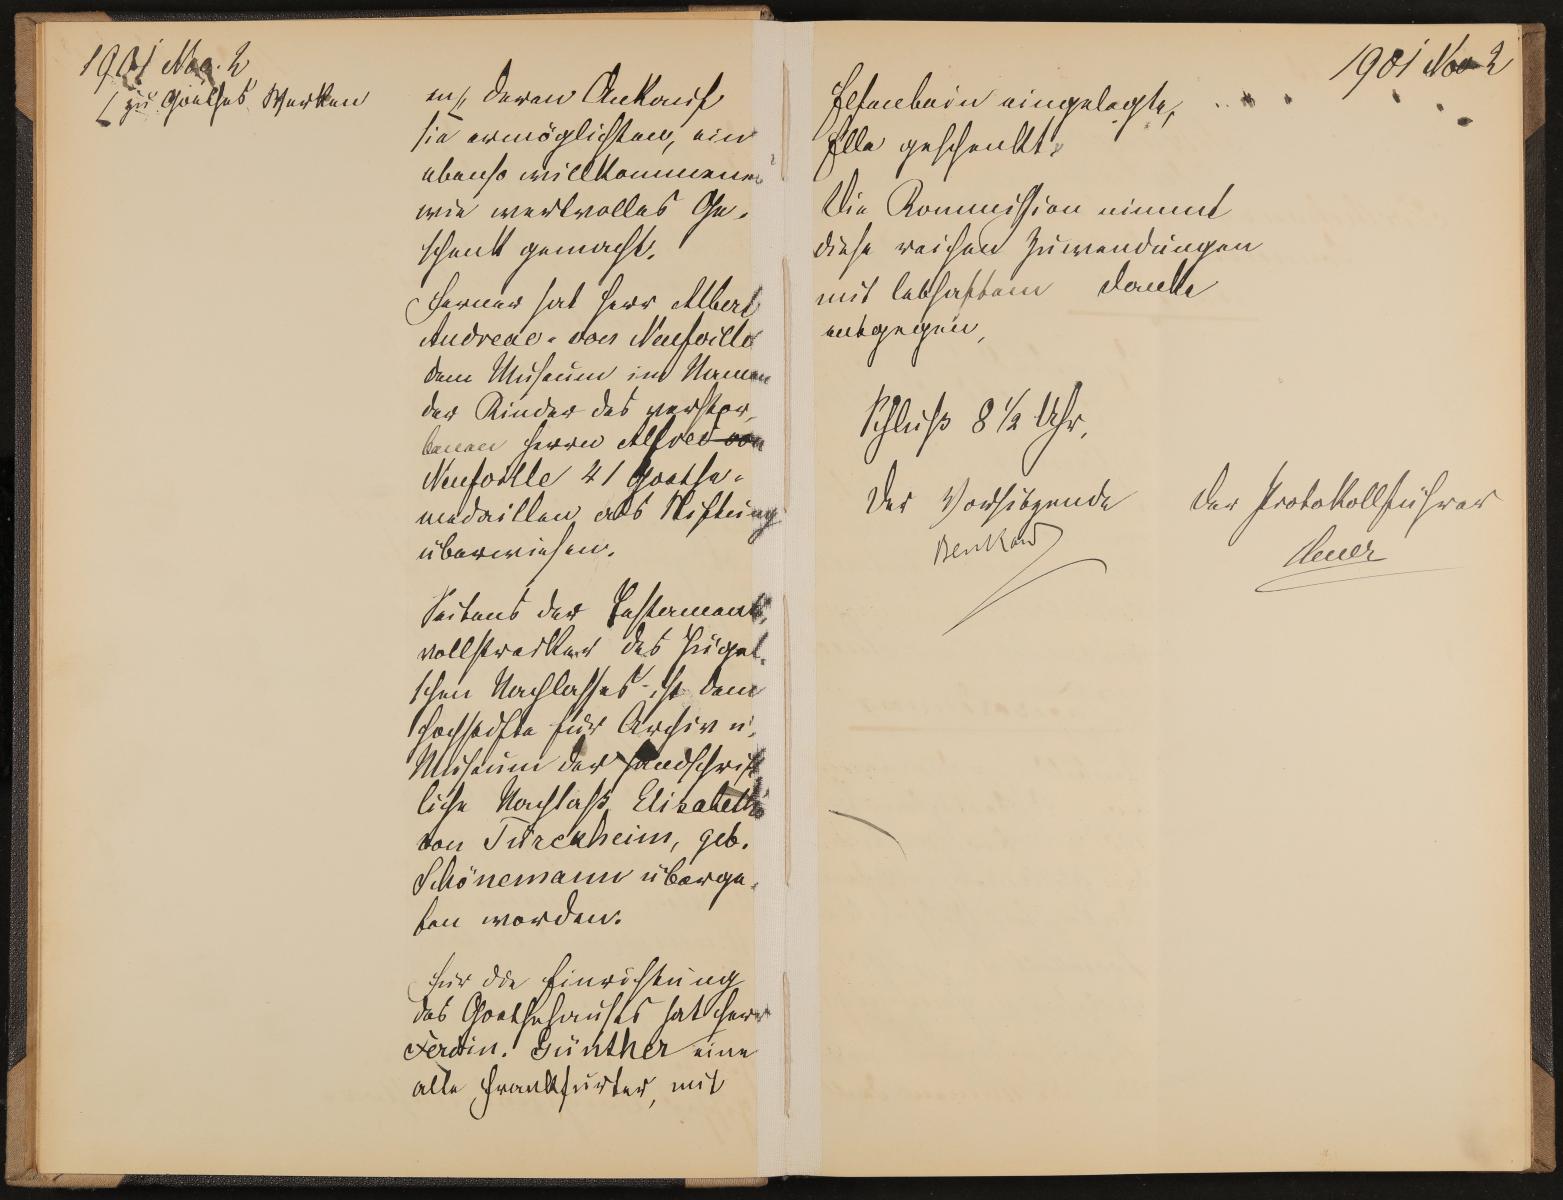 1901 Nov. 2
⌊ zu Goethes Werken
en⌊, deren Ankauf
sie ermöglichten, ein
ebenso willkommenes
wie wertvolles Ge-
schenk gemacht.
Ferner hat Herr Albert
Andreae-von Neufville
dem Museum im Namen
der Kinder des verstor-
benen Herrn Alfred von
Neufville 21 Goethe-
medaillen als Stiftung
überwiesen.
Seitens der Testaments-
vollstrecker des Hügel-
schen Nachlasses ist dem
Hochstifte für Archiv u.
Museum der handschrift-
liche Nachlaß Elisabeth
von Türckheim, geb.
Schönemann überge-
ben worden.
Für die Einrichtung
des Goethehauses hat Herr
Ferdin. Günther eine
alte Frankfurter, mit
1901 Nov 2
Elfenbein eingelegte,
Elle geschenkt.
Die Kommission nimmt
diese reichen Zuwendungen
mit lebhaftem Danke
entgegen.
Schluß 8 1/2 Uhr.
Der Vorsitzende
Der Protokollführer
Benkard
Heuer